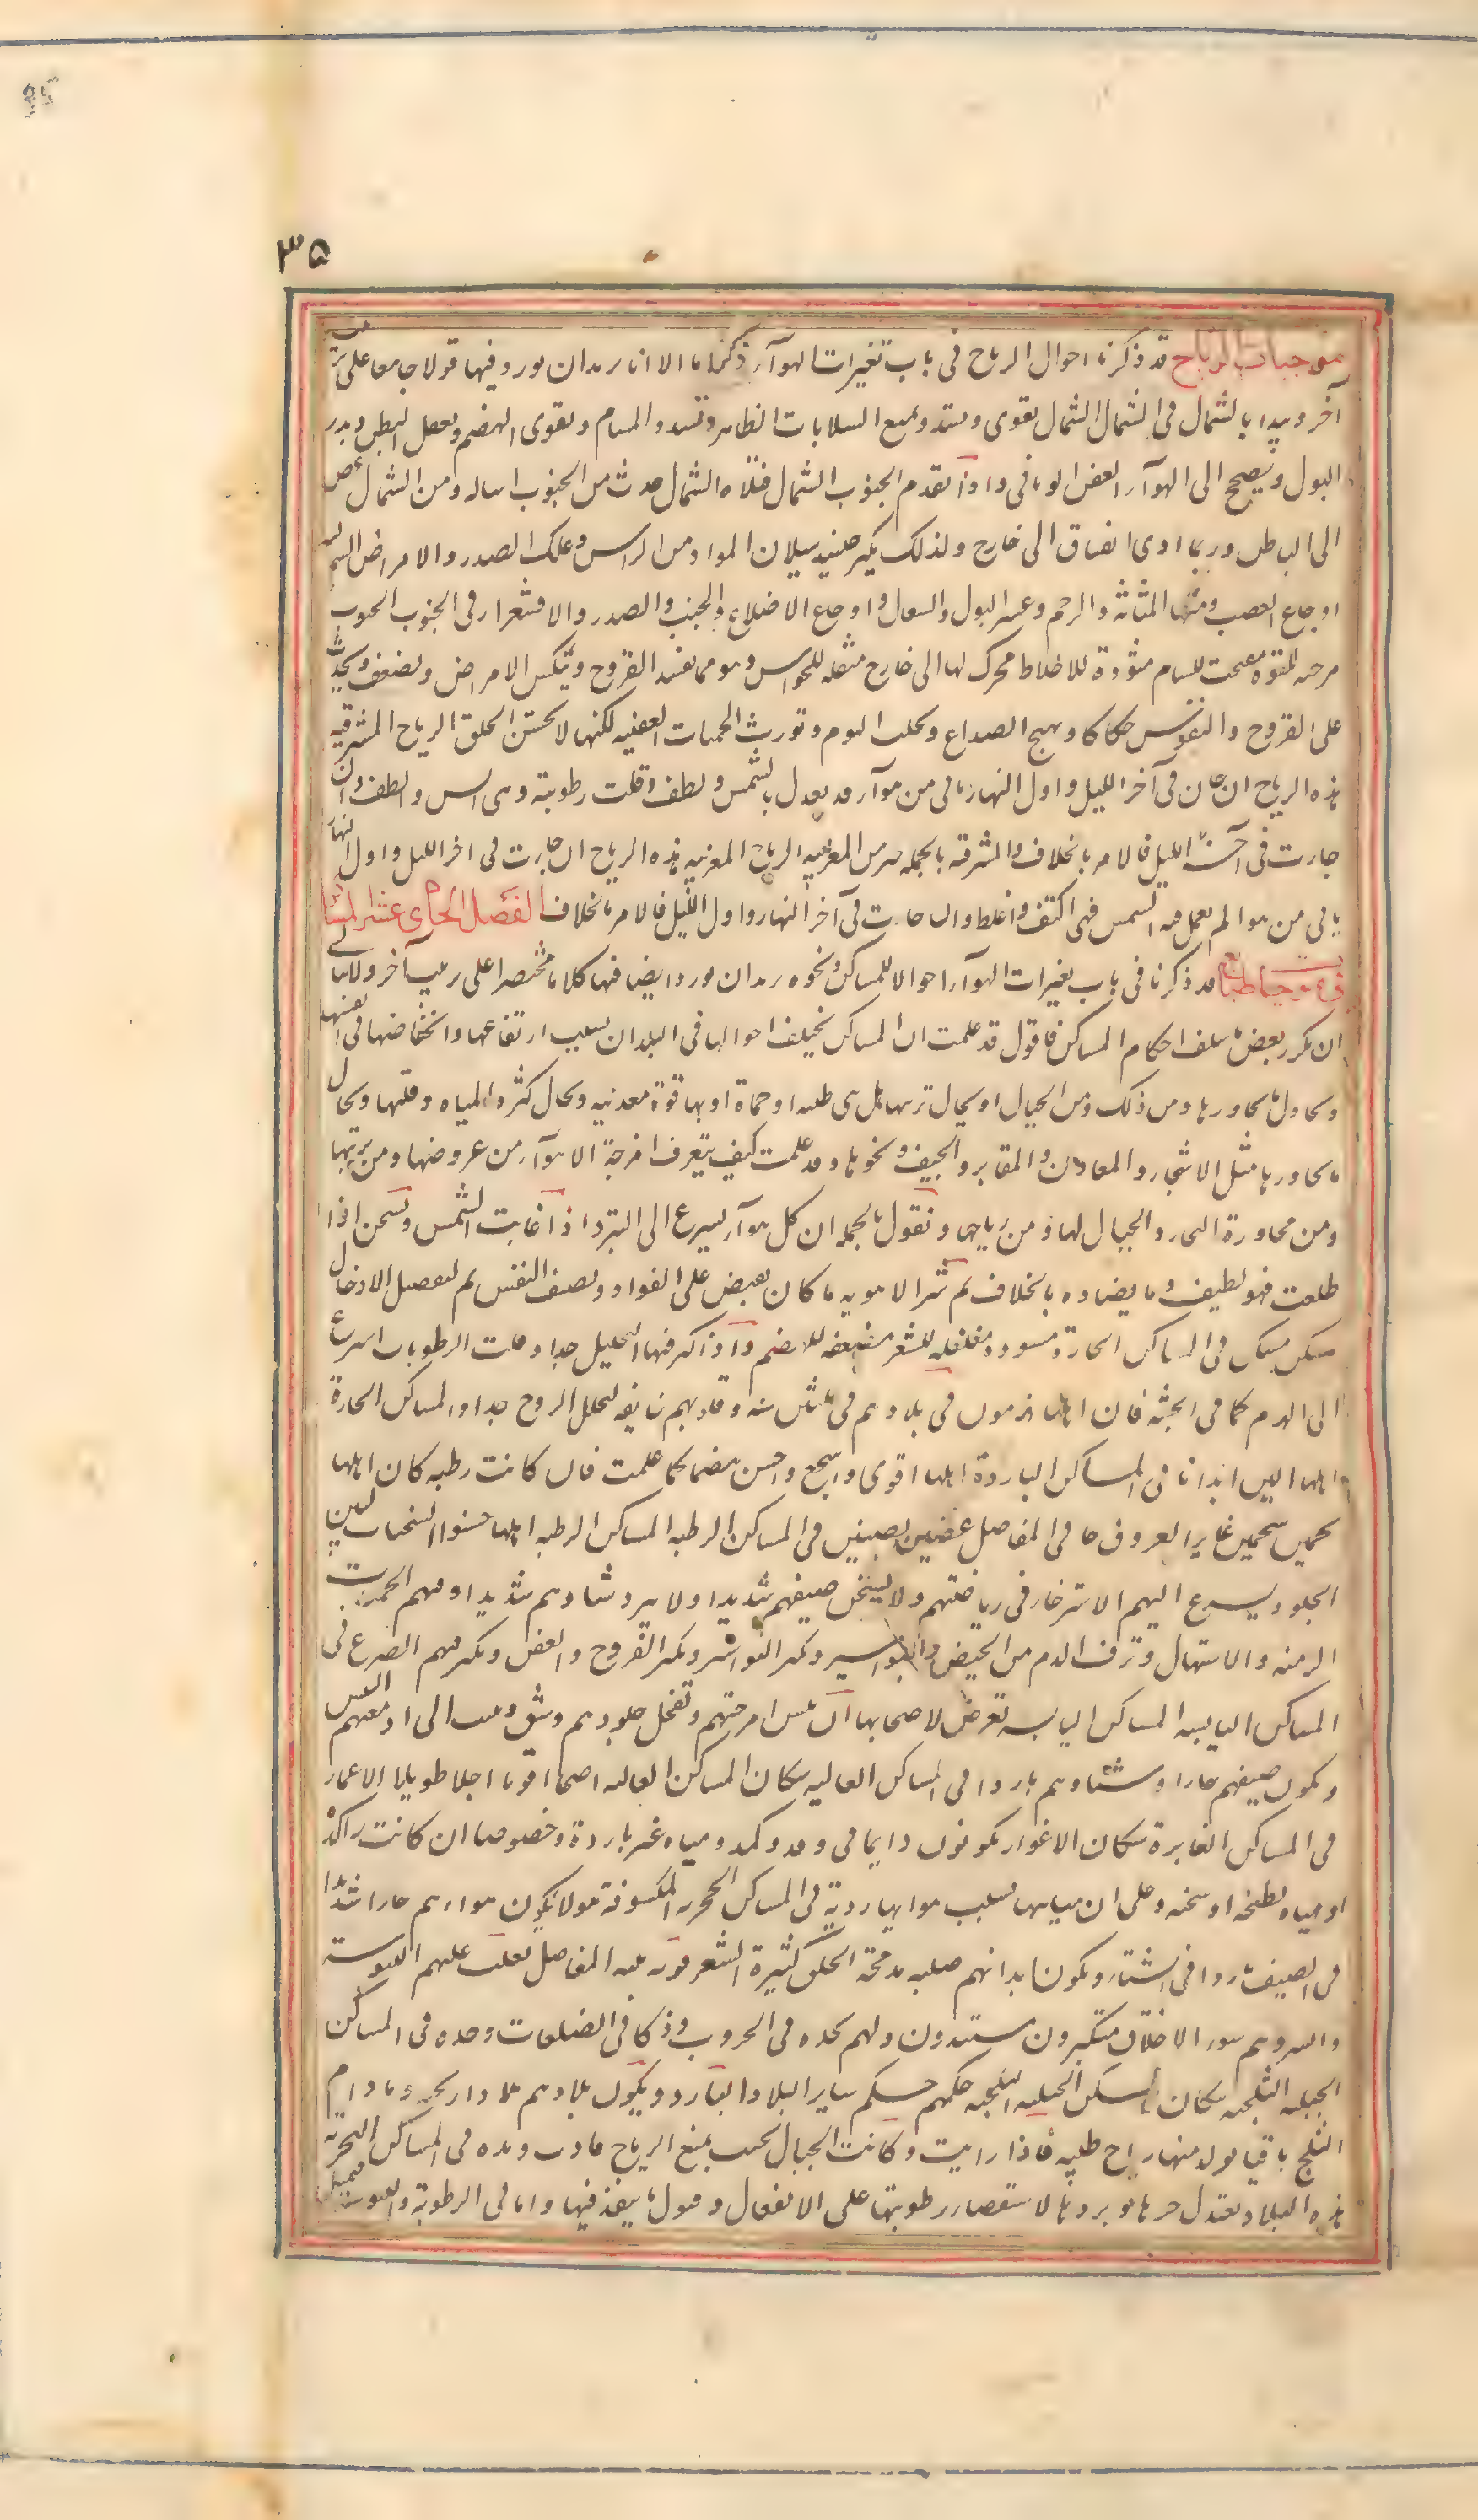 ٣٥
موجبات الرياح قد ذكرنا احوال الرياح فى باب تغيرات الهوآء ذكرا ما الا انا نريد ان نورد فيها قولا جامعا على
آخر ونبدا بالشمال فى الشمال الشمال تقوى وتشد وتمنع السيلانات الظاهرة وتسد المسام وتقوى الهضم وتعقل البطن وتدر
البول وتصحح الهوآء العفن الوبائى واذا تقدم الجنوب الشمال فتلاه الشمال حدث من الجنوب اساله ومن الشمال عصر
الى الباطن وربما ادى انفتاق الى خارج ولذلك يكثر حينئذ سيلان المواد من الراس وعلل الصدر والامراض الشمالية
اوجاع العصب ومنها المثانة والرحم وعسر البول والسعال واوجاع الاضلاع والجنب والصدر والاقشعرار فى الجنوب الجنوب
مرخيه للقوة مفتحة للمسام مثورة للاخلاط محركة لها الى خارج مثقله للحواس وهو مما يفسد القروح وينكس الامراض وتضعف ويحدث
على القروح والنقرس حكاكا ويهيج الصداع ويجلب النوم وتورث الحميات العفنيه لكنها لا تخشن الحلق الرياح المشرقيه
هذه الرياح ان جاءت فى آخر الليل واول النهار تاتى من هوآء قد تعدل بالشمس ولطف وقلت رطوبته وهى ايبس والطف وان
جاءت فى آخر النهار واول الليل فالامر بالخلاف والمشرقيه بالجمله خير من المغربيه الرياح المغربيه هذه الرياح ان جاءت فى اخر الليل واول النهار
تاتى من هوا لم تعمل فيه الشمس فهى اكثف واغلظ وان جاءت فى آخر النهار واول الليل فالامر بالخلاف الفصل الحادى عشر
فى موجبات قد ذكرنا فى باب تغيرات الهوآء احوالا للمساكن ونحن نريد ان نورد ايضا فيها كلاما مختصرا على ترتيب آخر ولا نبالى
ان نكرر بعض ما سلف احكام المساكن فاقول قد علمت ان المساكن تختلف احوالها فى البلدان بسبب ارتفاعها وانخفاضها فى انفسها
ولحال ما يجاورها من ذلك ومن الجبال ولحال تربتها هل هى طينه او حماة او بها قوة معدنيه ولحال كثرة المياه وقلتها ولحال
ما يجاورها مثل الاشجار والمعادن والمقابر والجيف ونحوها وقد علمت كيف يتعرف امزجة الاهوآء من عروضها ومن تربتها
ومن مجاورة البحار والجبال لها ومن رياحها ونقول بالجمله ان كل هوآء يسرع الى التبرد اذا غابت الشمس وتسخن اذا
طلعت فهو لطيف وما يضاده بالخلاف ثم شر الاهويه ما كان يقبض على الفواد ويضيق النفس ثم لنفصل الان حال
مسكن مسكن فى المساكن الحارة مسوده مفلفله للشعر مضعفه للهضم واذا كثر فيها التحليل جدا وقلت الرطوبات اسرع
الى الهرم كما فى الحبشه فان اهلها يهرمون فى بلادهم فى ثلثين سنه وقلوبهم خايفه لتحلل الروح جدا والمساكن الحارة
اهلها الين ابدانا فى المساكن الباردة اهلها اقوى واشجع واحسن هضما كما علمت فان كانت رطبه كان اهلها
لحمين شحمين غايرى العروق جافى المفاصل غضين بضين فى المساكن الرطبه المساكن الرطبه اهلها حسنوا السحنات لينوا
الجلود يسرع اليهم الاسترخاء فى رياضتهم ولا يسخن صيفهم شديدا ولا يبرد شتاوهم شديدا وفيهم الحميات
المزمنه والاسهال ونزف الدم من الحيض والبواسير وتكثر النواصير وتكثر القروح والعفن ويكثر فيهم الصرع فى
المساكن اليابسه المساكن اليابسه تعرض لاصحابها ان تيبس امزجتهم وتقحل جلودهم وتشقق ويسبق الى ادمغتهم اليبس
ويكون صيفهم حارا وشتاوهم باردا فى المساكن العاليه سكان المساكن العاليه اصحا اقويا اجلاد طويلوا الاعمار
فى المساكن الغايرة سكان الاغوار يكونون دايما فى ومد وكمد ومياه غير باردة وخصوصا ان كانت راكدة
او مياه بطيخه او سبخه وعلى ان مياهها بسبب هوايها ردية فى المساكن الحجريه المكشوفة هولا يكون هواءهم حارا شديدا
فى الصيف باردا فى الشتاء وتكون ابدانهم صلبه مدمجة الخلق كثيرة الشعر قويه بينه المفاصل تغلب عليهم اليبوسة
والسهر وهم سوء الاخلاق متكبرون مستبدون ولهم نجده فى الحروب وذكا فى الصناعات وحده فى المساكن
الجبليه الثلجيه سكان المساكن الجبليه الثلجيه حكمهم حكم ساير البلاد البارده ويكون بلادهم بلادا ريحيه وما دام
الثلج باقيا تولد منها رياح طيبه فاذا ذابت وكانت الجبال بحيث تمنع الرياح عادت ومده فى المساكن البحريه
هذه البلاد يعتدل حرها وبردها لاستعصاء رطوبتها على الانفعال وقبول ما ينفذ فيها واما فى الرطوبة واليبوسة فتميل